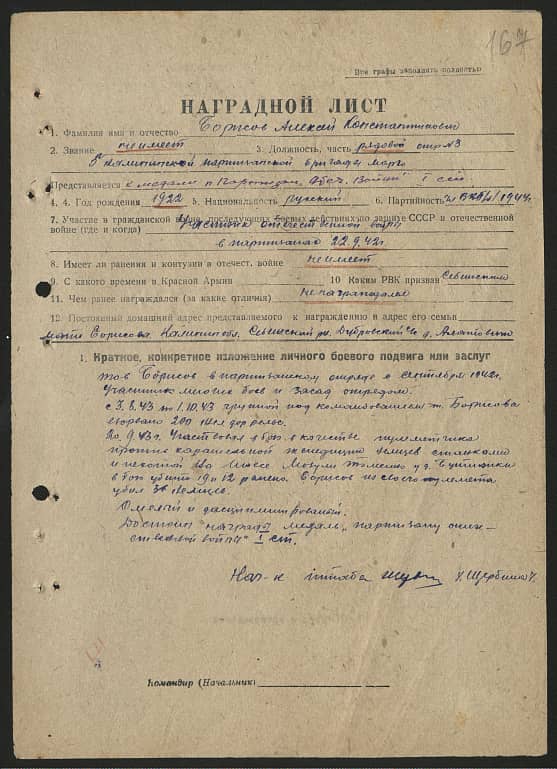 167
Все графы заполнять полностью
НАГРАДНОЙ ЛИСТ
1. Фамилия имя и отчество Борисов Алексей Константинович
2. Звание не имеет 3. Должность, часть рядовой отр №3
Калининской партизанской бригады
Представляется к медали
4. 4. Год рождения 1922 5. Национальность русский 6. Партийность 1944г.
7. Участие в гражданской войне, последующих боевых действиях по защите СССР и отечественной
войне (где и когда) Участник отечественной войны
в партизанах 22.9.42г.
8. Имеет ли ранения и контузии в отечест. войне не имеет
9. С какого времени в Красной Армии 10 Каким РВК призван Себежский
11. Чем ранее награждался (за какие отличия) не награждался
12. Постоянный домашний адрес представляемого к награждению и адрес его семьи
мать Борисова Калинин обл. Себежский рн. Дубровский д.
1. Краткое, конкретное изложение личного боевого подвига или заслуг
тов Борисов в партизанском отряде с сентября 1942г.
Участник многих боев и засад отрядом.
с 3.8.43 по 1.10.43 группой под командованием т. Борисова
взорвано 200
9.43г. Участвовал в бою в качестве пулеметчика
против карательной экспедиции немцев
в бою убито 19 и 12 ранено. Борисов из своего пулемета
убил 3х немцев.
Смелый и дисциплинированый.
Достоин награды медаль „партизану отече-
ственной войны" I ст.
Нач-к штаба
Командир (Начальник)